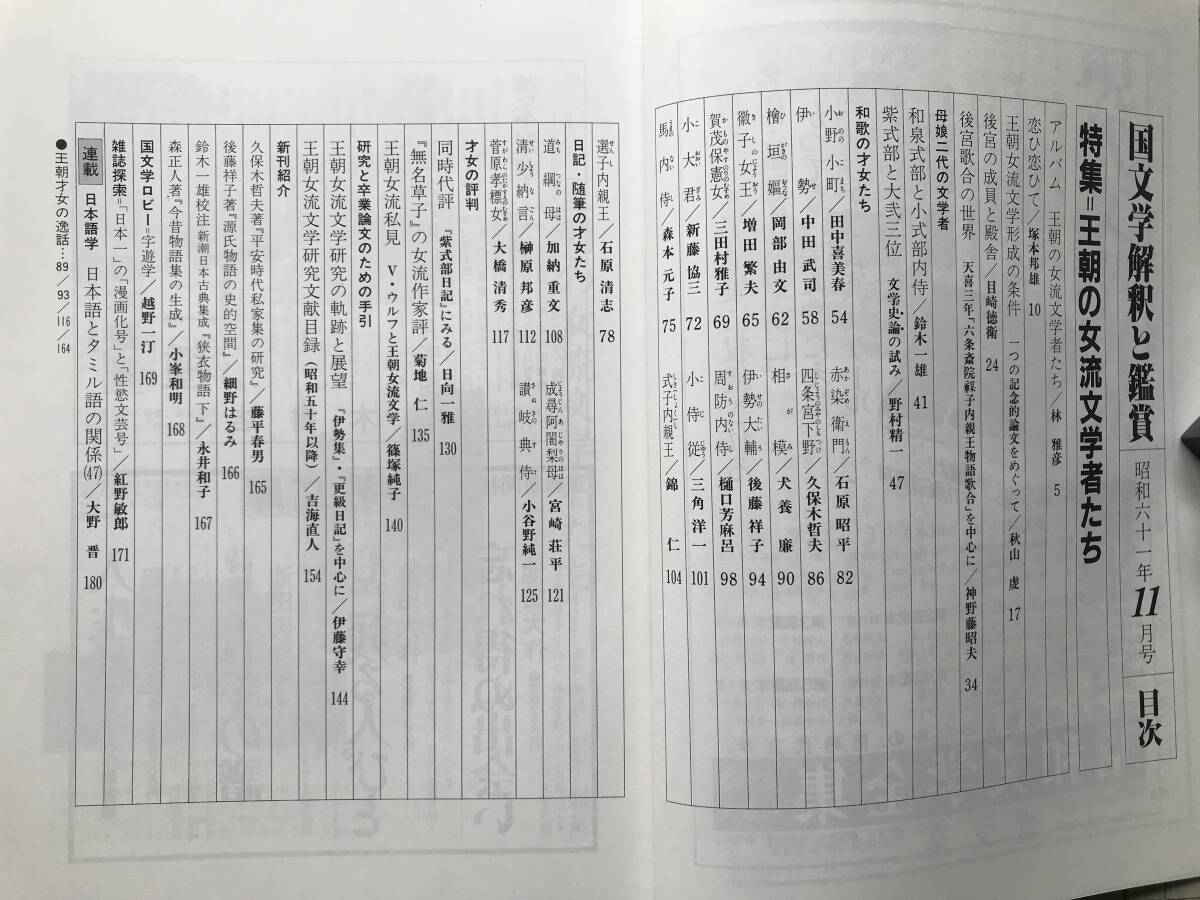 国文学解釈と鑑賞 昭和六十一年11月号 目次
特集=王朝の女流文学者たち
アルバム 王朝の女流文学者たち/林 雅彦 5
恋ひ恋ひて/塚本邦雄 10
王朝女流文学形成の条件 一つの記念的論文をめぐって/秋山 虔 17
後宮の成員と殿舎/目崎徳衛 24
後宮歌合の世界 天喜三年「六条斎院禖子内親王物語歌合」を中心に/神野藤昭夫 34
母娘二代の文学者
和泉式部と小式部内侍/鈴木一雄 41
紫式部と大弐三位 文学史・論の試み/野村精一 47
和歌の才女たち
小野小町/田中喜美春 54 赤染衛門/石原昭平 82
伊勢/中田武司 58 四条宮下野/久保木哲夫 86
檜垣嫗/岡部由文 62 相模/犬養 廉 90
徽子女王/増田繁夫 65 伊勢大輔/後藤祥子 94
賀茂保憲女/三田村雅子 69 周防内侍/樋口芳麻呂 98
小大君/新藤協三 72 小侍従/三角洋一 101
馬内侍/森本元子 75 式子内親王/錦 仁 104
選子内親王/石原清志 78
日記・随筆の才女たち
道綱母/加納重文 108 成尋阿闍梨母/宮崎荘平 121
清少納言/榊原邦彦 112 讃岐典侍/小谷野純一 125
菅原孝標女/大橋清秀 117
才女の評判
同時代評 『紫式部日記』にみる/日向一雅 130
『無名草子』の女流作家評/菊地 仁 135
王朝女流私見 V・ウルフと王朝女流文学/篠塚純子 140
研究と卒業論文のための手引
王朝女流文学研究の軌跡と展望 『伊勢集』・『更級日記』を中心に/伊藤守幸 144
王朝女流文学研究文献目録(昭和五十年以降)/吉海直人 154
新刊紹介
久保木哲夫著『平安時代私家集の研究』/藤平春男 165
後藤祥子著『源氏物語の史的空間』/細野はるみ 166
鈴木一雄校注 新潮日本古典集成『狭衣物語 下』/永井和子 167
森正人著『今昔物語集の生成』/小峯和明 168
国文学ロビー=字遊学/越野一汀 169
雑誌探索=「日本一」の「漫画化号」と「性慾文芸号」/紅野敏郎 171
連載 日本語学 日本語とタミル語の関係(47)/大野 晋 180
●王朝才女の逸話…89/93/116/164